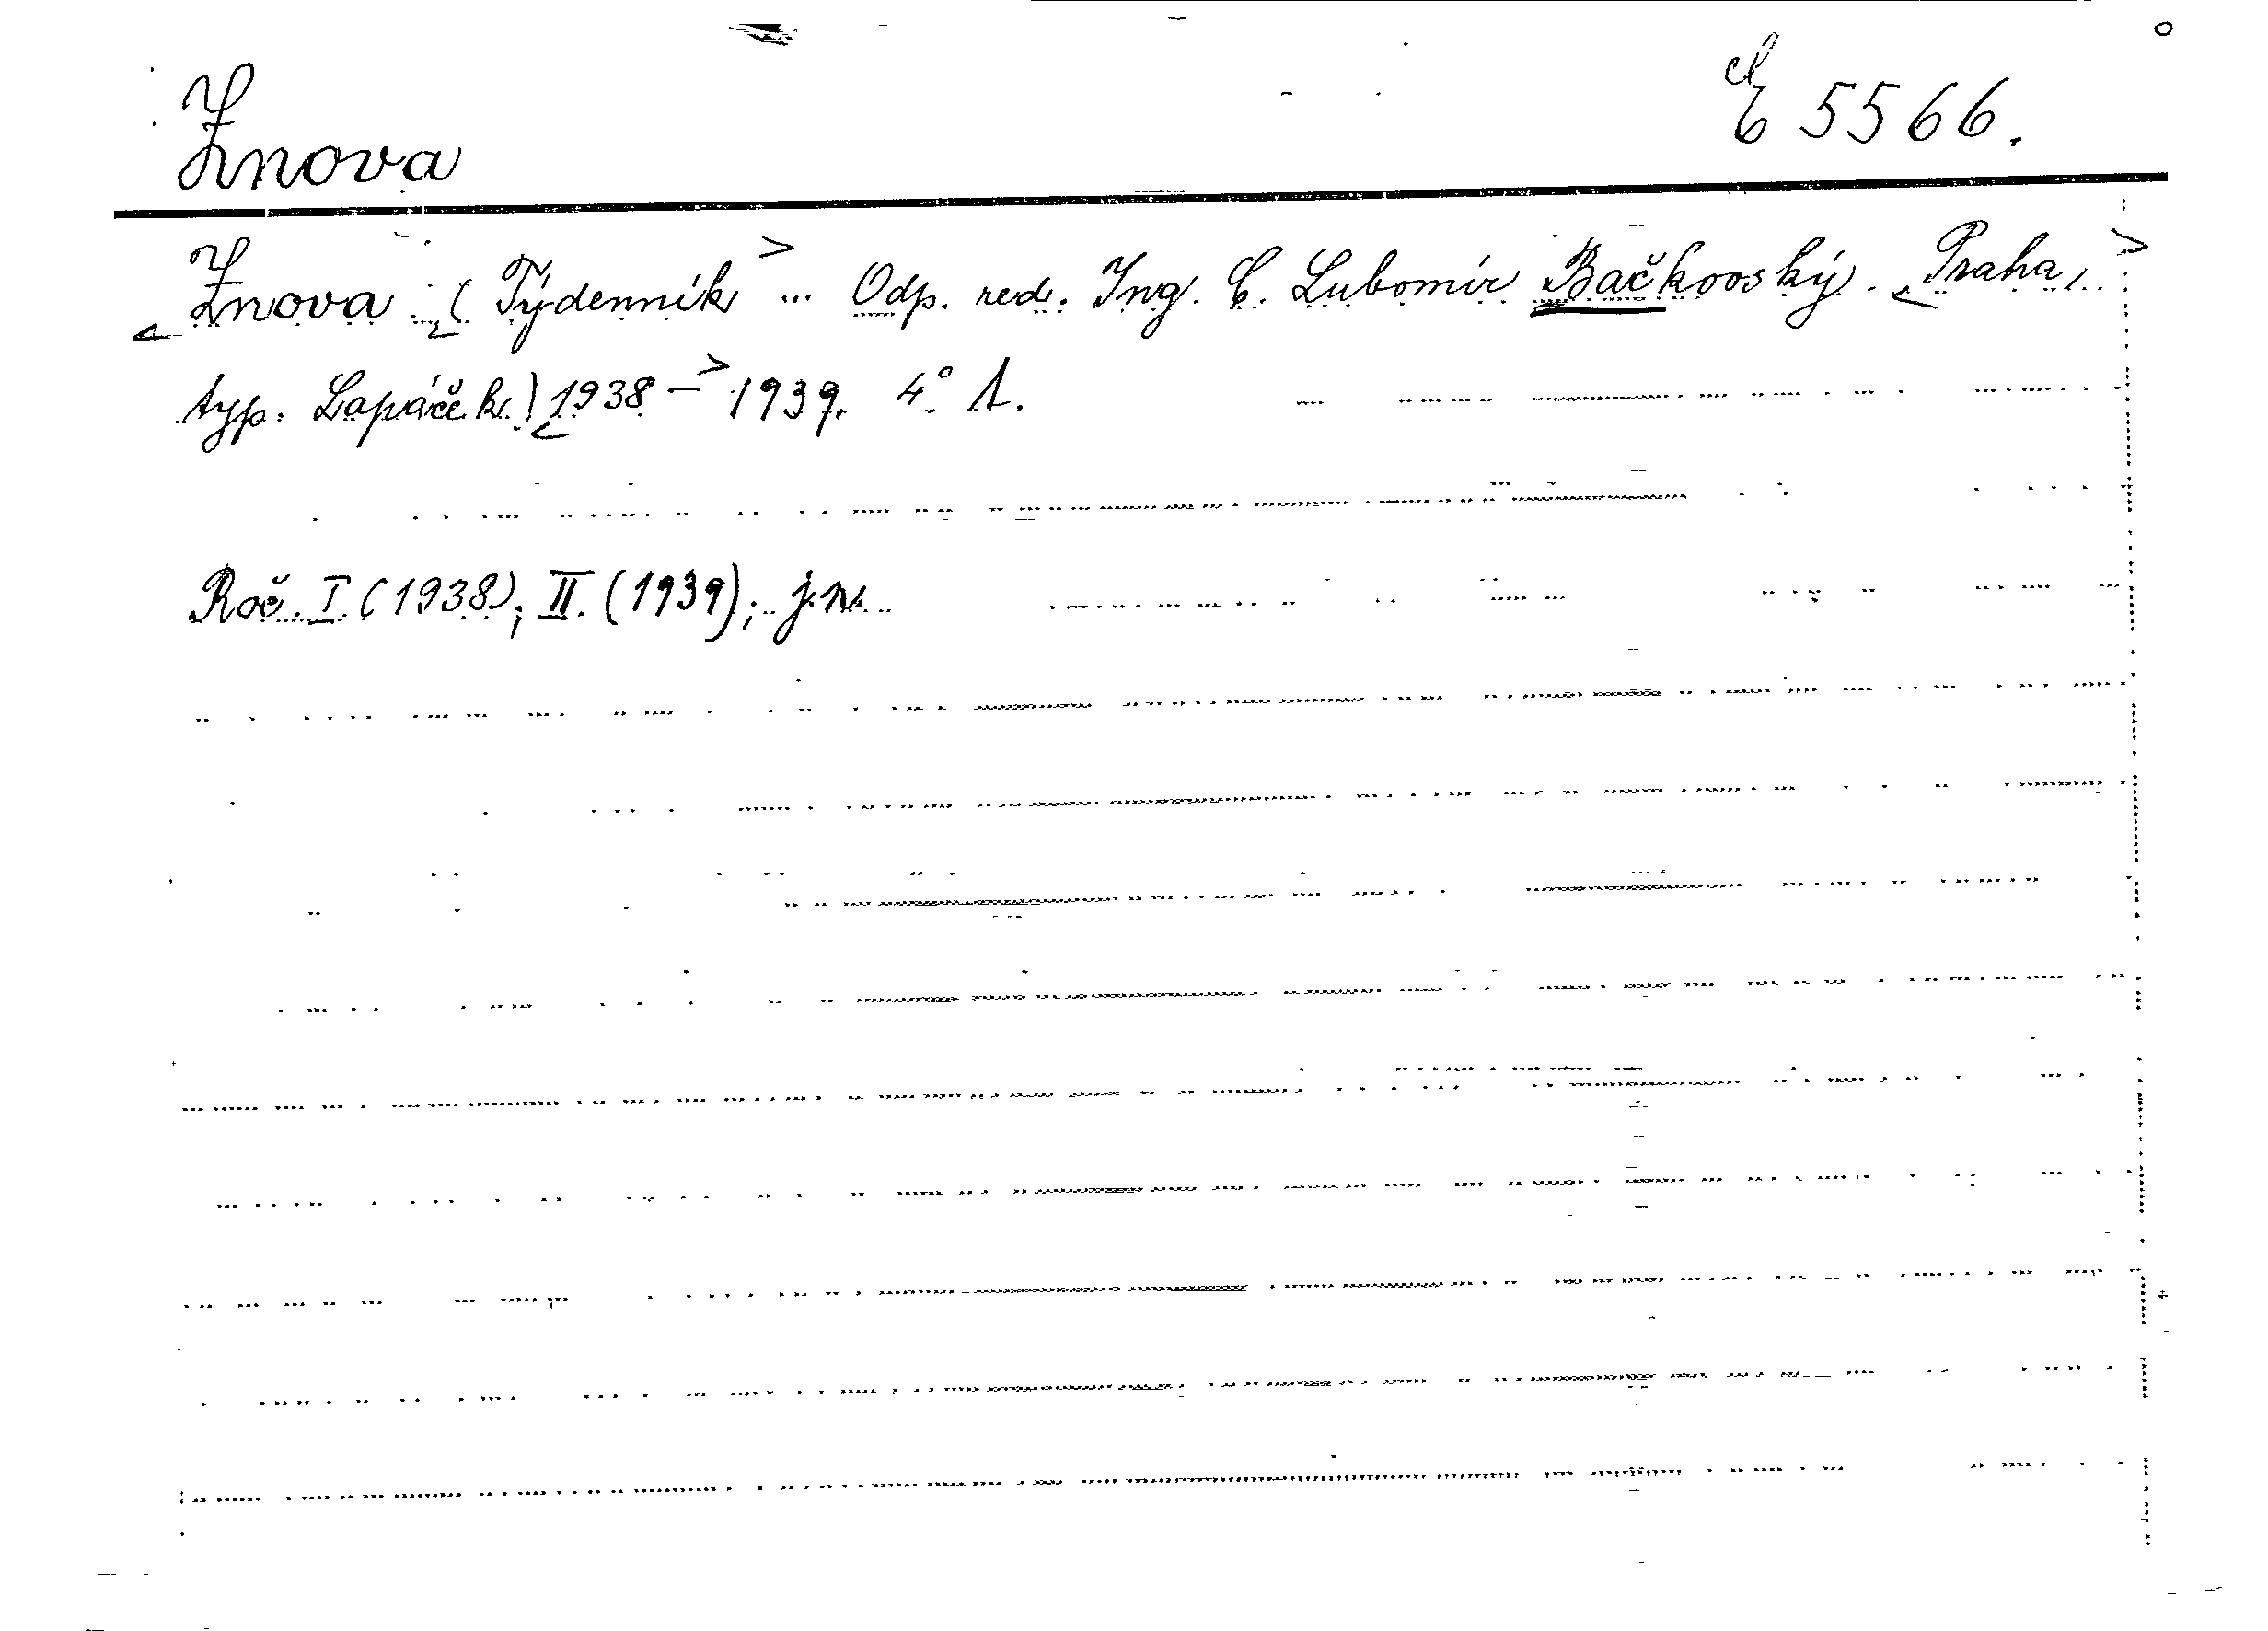 Znova
E 5566.
<Znova. (<Týdenník> ... Odp. red. Ing. C. Lubomír Bačkovský. <Praha,>
typ. Lapáček.) <1938 –> 1939. 4°
Roč. I. (1938); II. (1939); j.n.